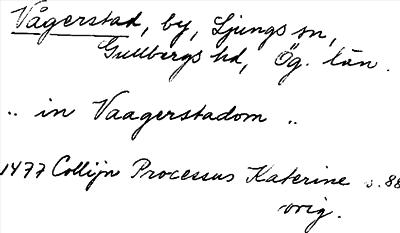 Vågerstad, by, Ljungs sn,
Gullbergs hd, Ög. län.
.. in Vaagerstadom ..
1477 Collijn Processus Katerine s. 88
orig.